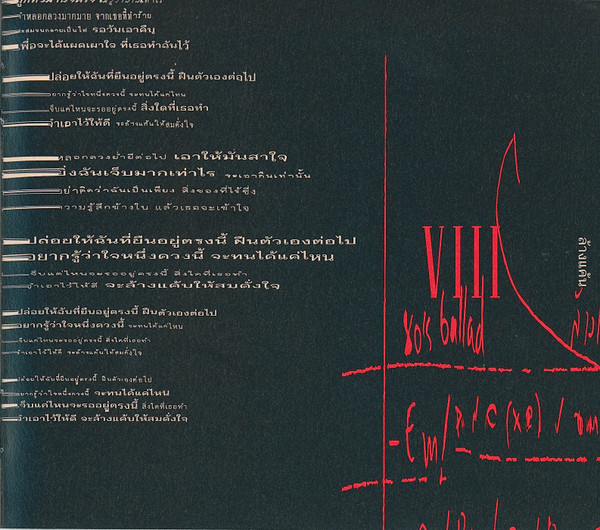 คำหลอกลวงมากมาย จากเธอที่ทำร้าย
สะสมจนกลายเป็นไฟ รอวันเอาคืน
เพื่อจะได้แผดเผาใจ ที่เธอทำฉันไว้
ปล่อยให้ฉันที่ยืนอยู่ตรงนี้ ฝืนตัวเองต่อไป
อยากรู้ว่าใจหนึ่งดวงนี้ จะทนได้แค่ไหน
เจ็บแค่ไหนจะรออยู่ตรงนี้ สิ่งใดที่เธอทำ
จำเอาไว้ให้ดี จะล้างแค้นให้สมดั่งใจ
หลอกลวงย่ำยีต่อไป เอาให้มันสาใจ
ยิ่งฉันเจ็บมากเท่าไร จะเอาคืนเท่านั้น
อย่าคิดว่าฉันเป็นเพียง สิ่งของที่ไร้ซึ่ง
ความรู้สึกข้างใน แล้วเธอจะเข้าใจ
ปล่อยให้ฉันที่ยืนอยู่ตรงนี้ ฝืนตัวเองต่อไป
อยากรู้ว่าใจหนึ่งดวงนี้ จะทนได้แค่ไหน
เจ็บแค่ไหนจะรออยู่ตรงนี้ สิ่งใดที่เธอทำ
จำเอาไว้ให้ดี จะล้างแค้นให้สมดั่งใจ
ปล่อยให้ฉันที่ยืนอยู่ตรงนี้ ฝืนตัวเองต่อไป
อยากรู้ว่าใจหนึ่งดวงนี้ จะทนได้แค่ไหน
เจ็บแค่ไหนจะรออยู่ตรงนี้ สิ่งใดที่เธอทำ
จำเอาไว้ให้ดี จะล้างแค้นให้สมดั่งใจ
ปล่อยให้ฉันที่ยืนอยู่ตรงนี้ ฝืนตัวเองต่อไป
อยากรู้ว่าใจหนึ่งดวงนี้ จะทนได้แค่ไหน
เจ็บแค่ไหนจะรออยู่ตรงนี้ สิ่งใดที่เธอทำ
จำเอาไว้ให้ดี จะล้างแค้นให้สมดั่งใจ
VIII
ล้างแค้น
80's ballad
- Em/